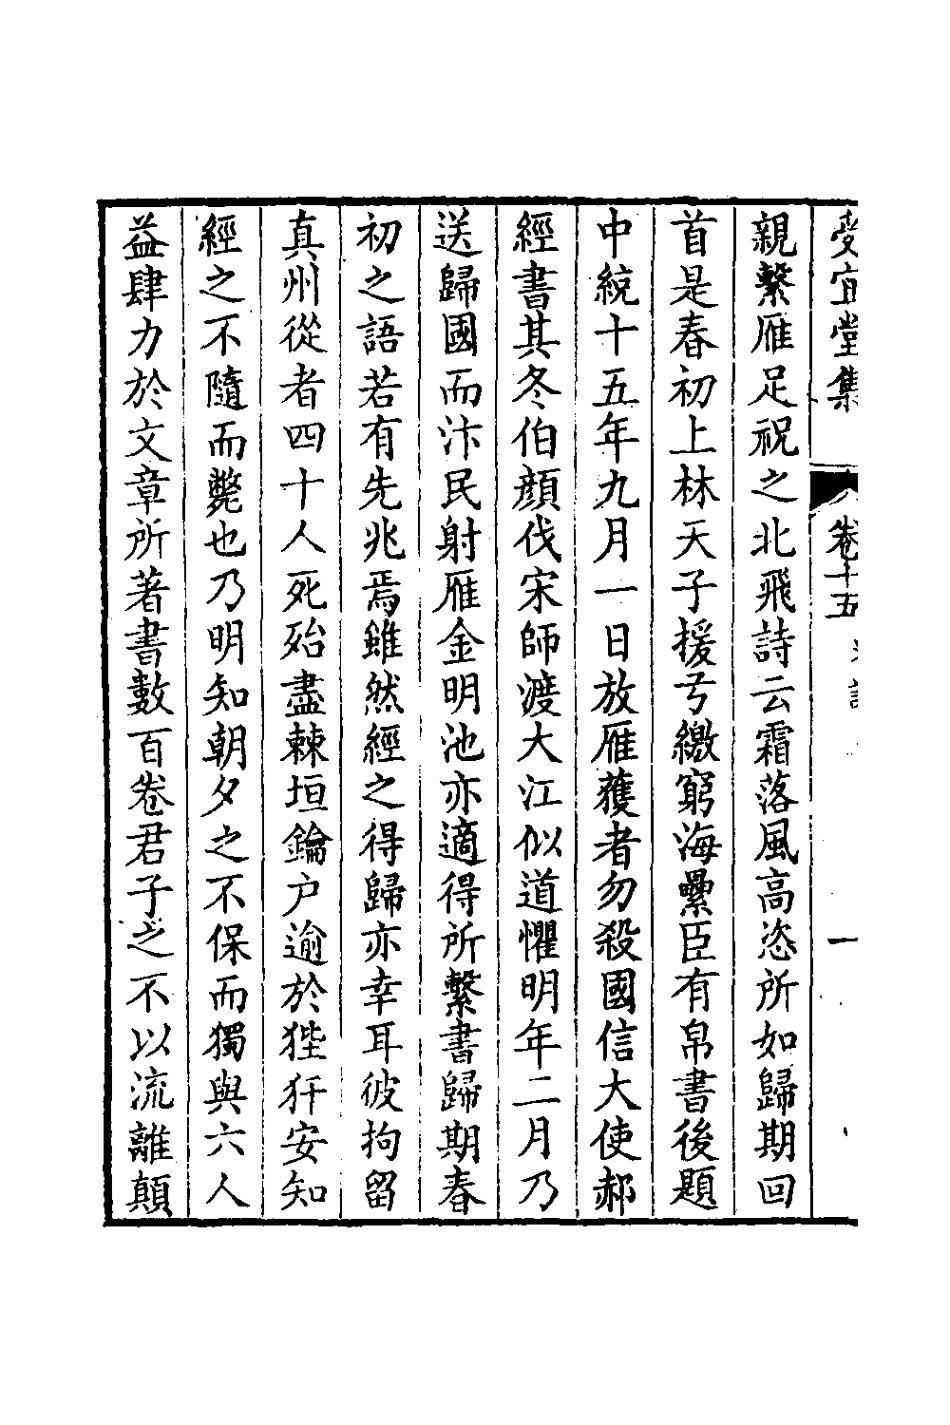 受宜堂集 卷十五 一
親繫雁足祝之北飛詩云霜落風高恣所如歸期回
首是春初上林天子援弓繳窮海纍臣有帛書後題
中統十五年九月一日放雁獲者勿殺國信大使郝
經書其冬伯顔伐宋師渡大江似道懼明年二月乃
送歸國而汴民射雁金明池亦適得所繫書歸期春
初之語若有先兆焉雖然經之得歸亦幸耳彼拘留
真州從者四十人死殆盡棘垣鑰户逾於狴犴安知
經之不隨而斃也乃明知朝夕之不保而獨與六人
益肆力於文章所著書數百卷君子之不以流離顛